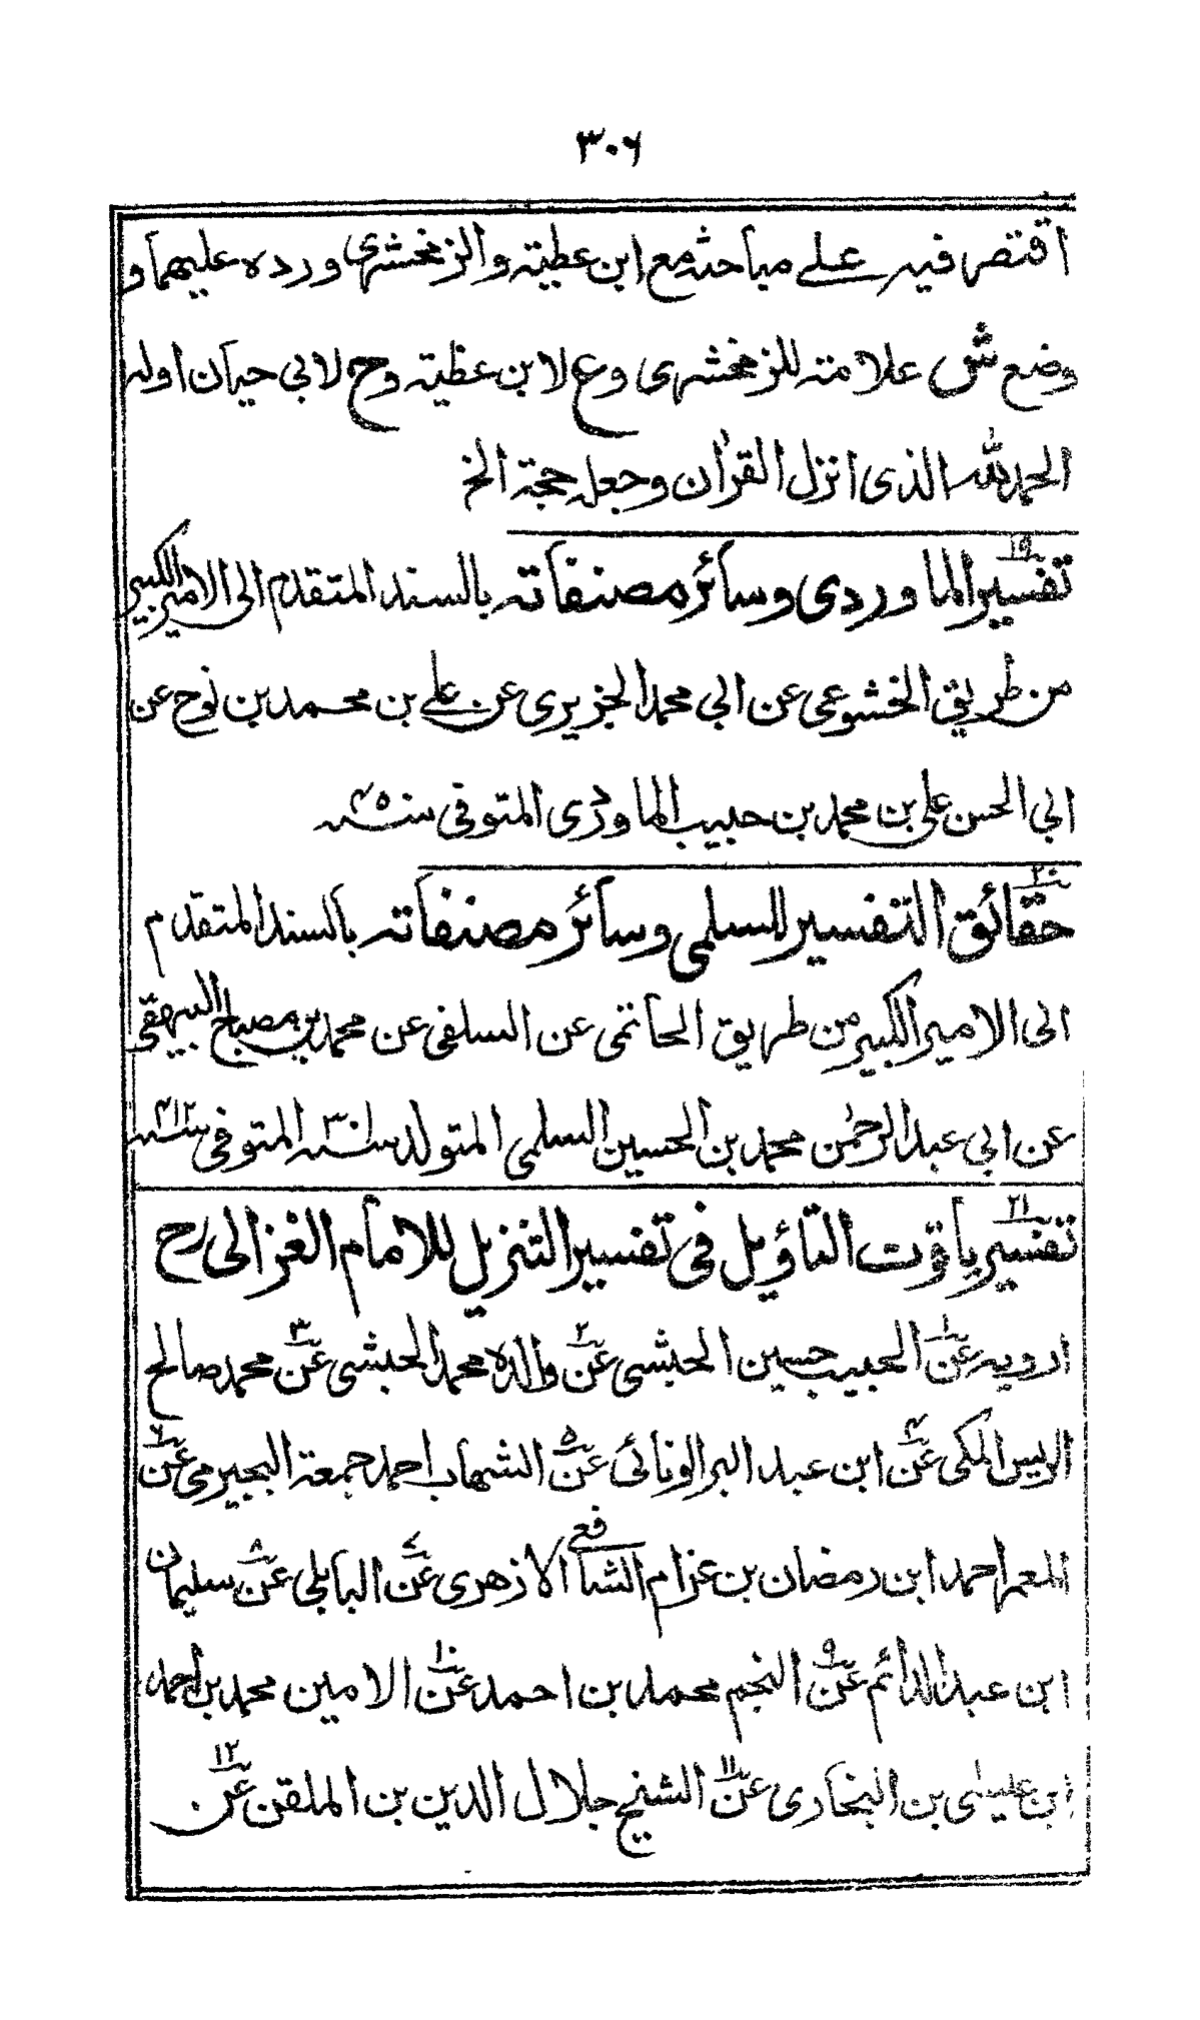 ٣٠٦
اقتصر فيه علے مباحثه مع ابن عطيته والزمخشری ورده عليهما و
وضع ش علامته للزمخشری وع لابن عظيته وح لابي حيان اوله
الحمد لله الذی انزل القرآن وجعله حجة الخ
١٩ تفسير الماوردی وسائر مصنفاته بالسند المتقدم الی الامير الكبير
من طريق الخشوعی عن ابي محمد الجزيری عن علے بن محمد بن نوح عن
ابي الحسن علی بن محمد بن حبيب الماوردی المتوفی سنه ٤٥
٢٠ حقائق التفسير للسلمی وسائر مصنفاته بالسند المتقدم
الی الامير الكبير من طريق الحاتمی عن السلفی عن محمد بن مصباح البيهقی
عن ابي عبد الرحمٰن محمد بن الحسين السلمی المتولد سنه ٣٠ المتوفی سنه ٤١٢
٢١ تفسير ياقوت التاؤيل فی تفسير التنزيل للامام الغزالی رح
ارويه عن١ الحبيب حسين الحبشی عن٢ والده محمد الحبشی عن٣ محمد صالح
الريس المكی عن٤ ابن عبد البر الونائی عن٥ الشهاب احمد جمعة البجيرمی عن٦
المعمر احمد ابن رمضان بن عزام الشافعی الازهری عن٧ البابلی عن٨ سليمان
ابن عبد الدائم عن٩ النجم محمد بن احمد عن١٠ الامين محمد بن احمد
ابن عليسٰی بن البخاری عن١١ الشيخ جلال الدين بن الملقن عن١٢